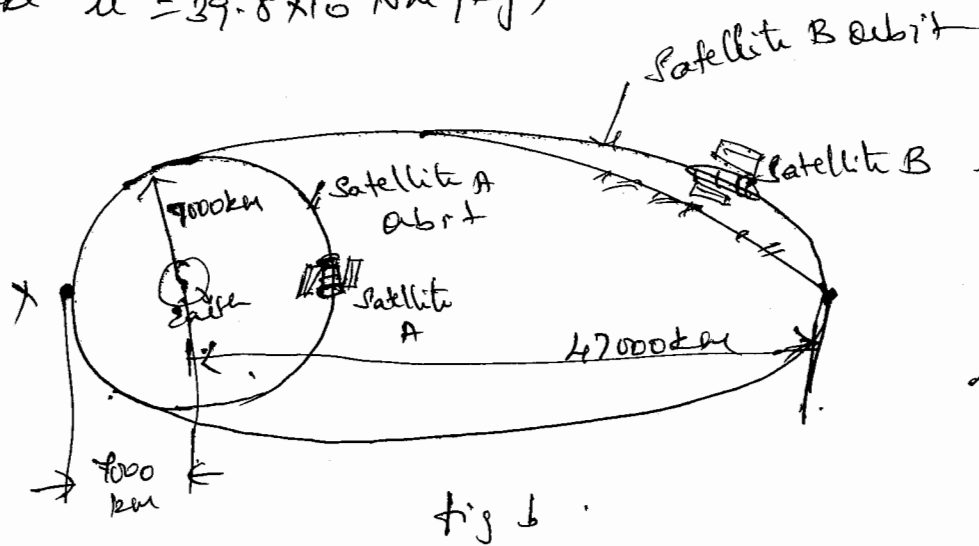 u = 39.8 x 10 Nm / kg)
Satellite B orbit
Satellite B
7000km
Satellite A
orbit
X
Earth
Satellite
A
47000km
7000
km
fig b.